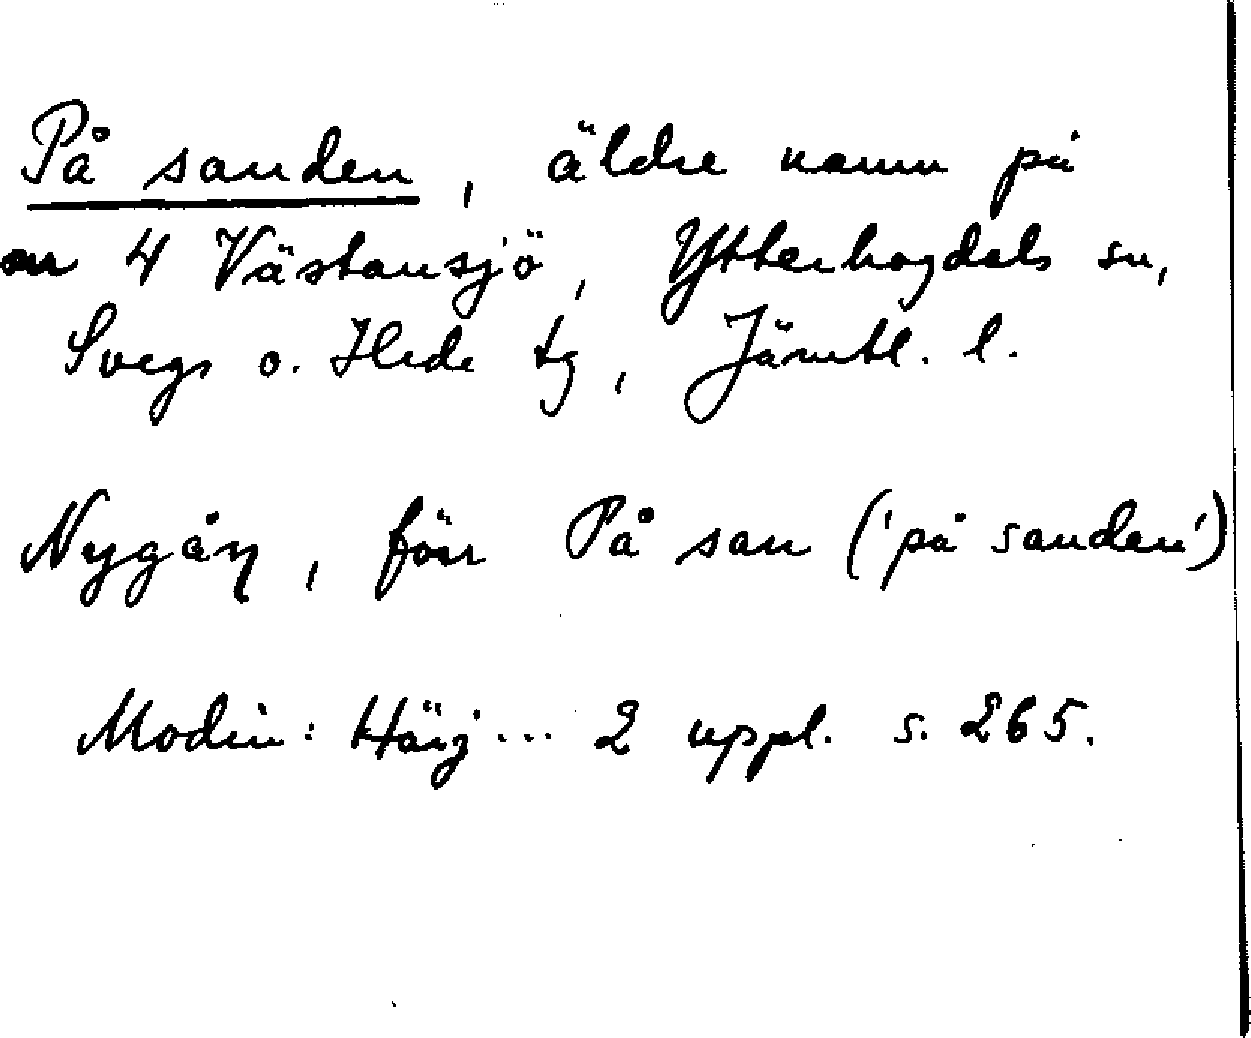 På sanden, äldre namn på
nr 4 Västansjö, Ytterhogdals sn,
Svegs o. Hede tg, Jämtl. l.
Nygåŋ, förr På san ('på sanden')
Modin: Härj... 2 uppl. s. 265.